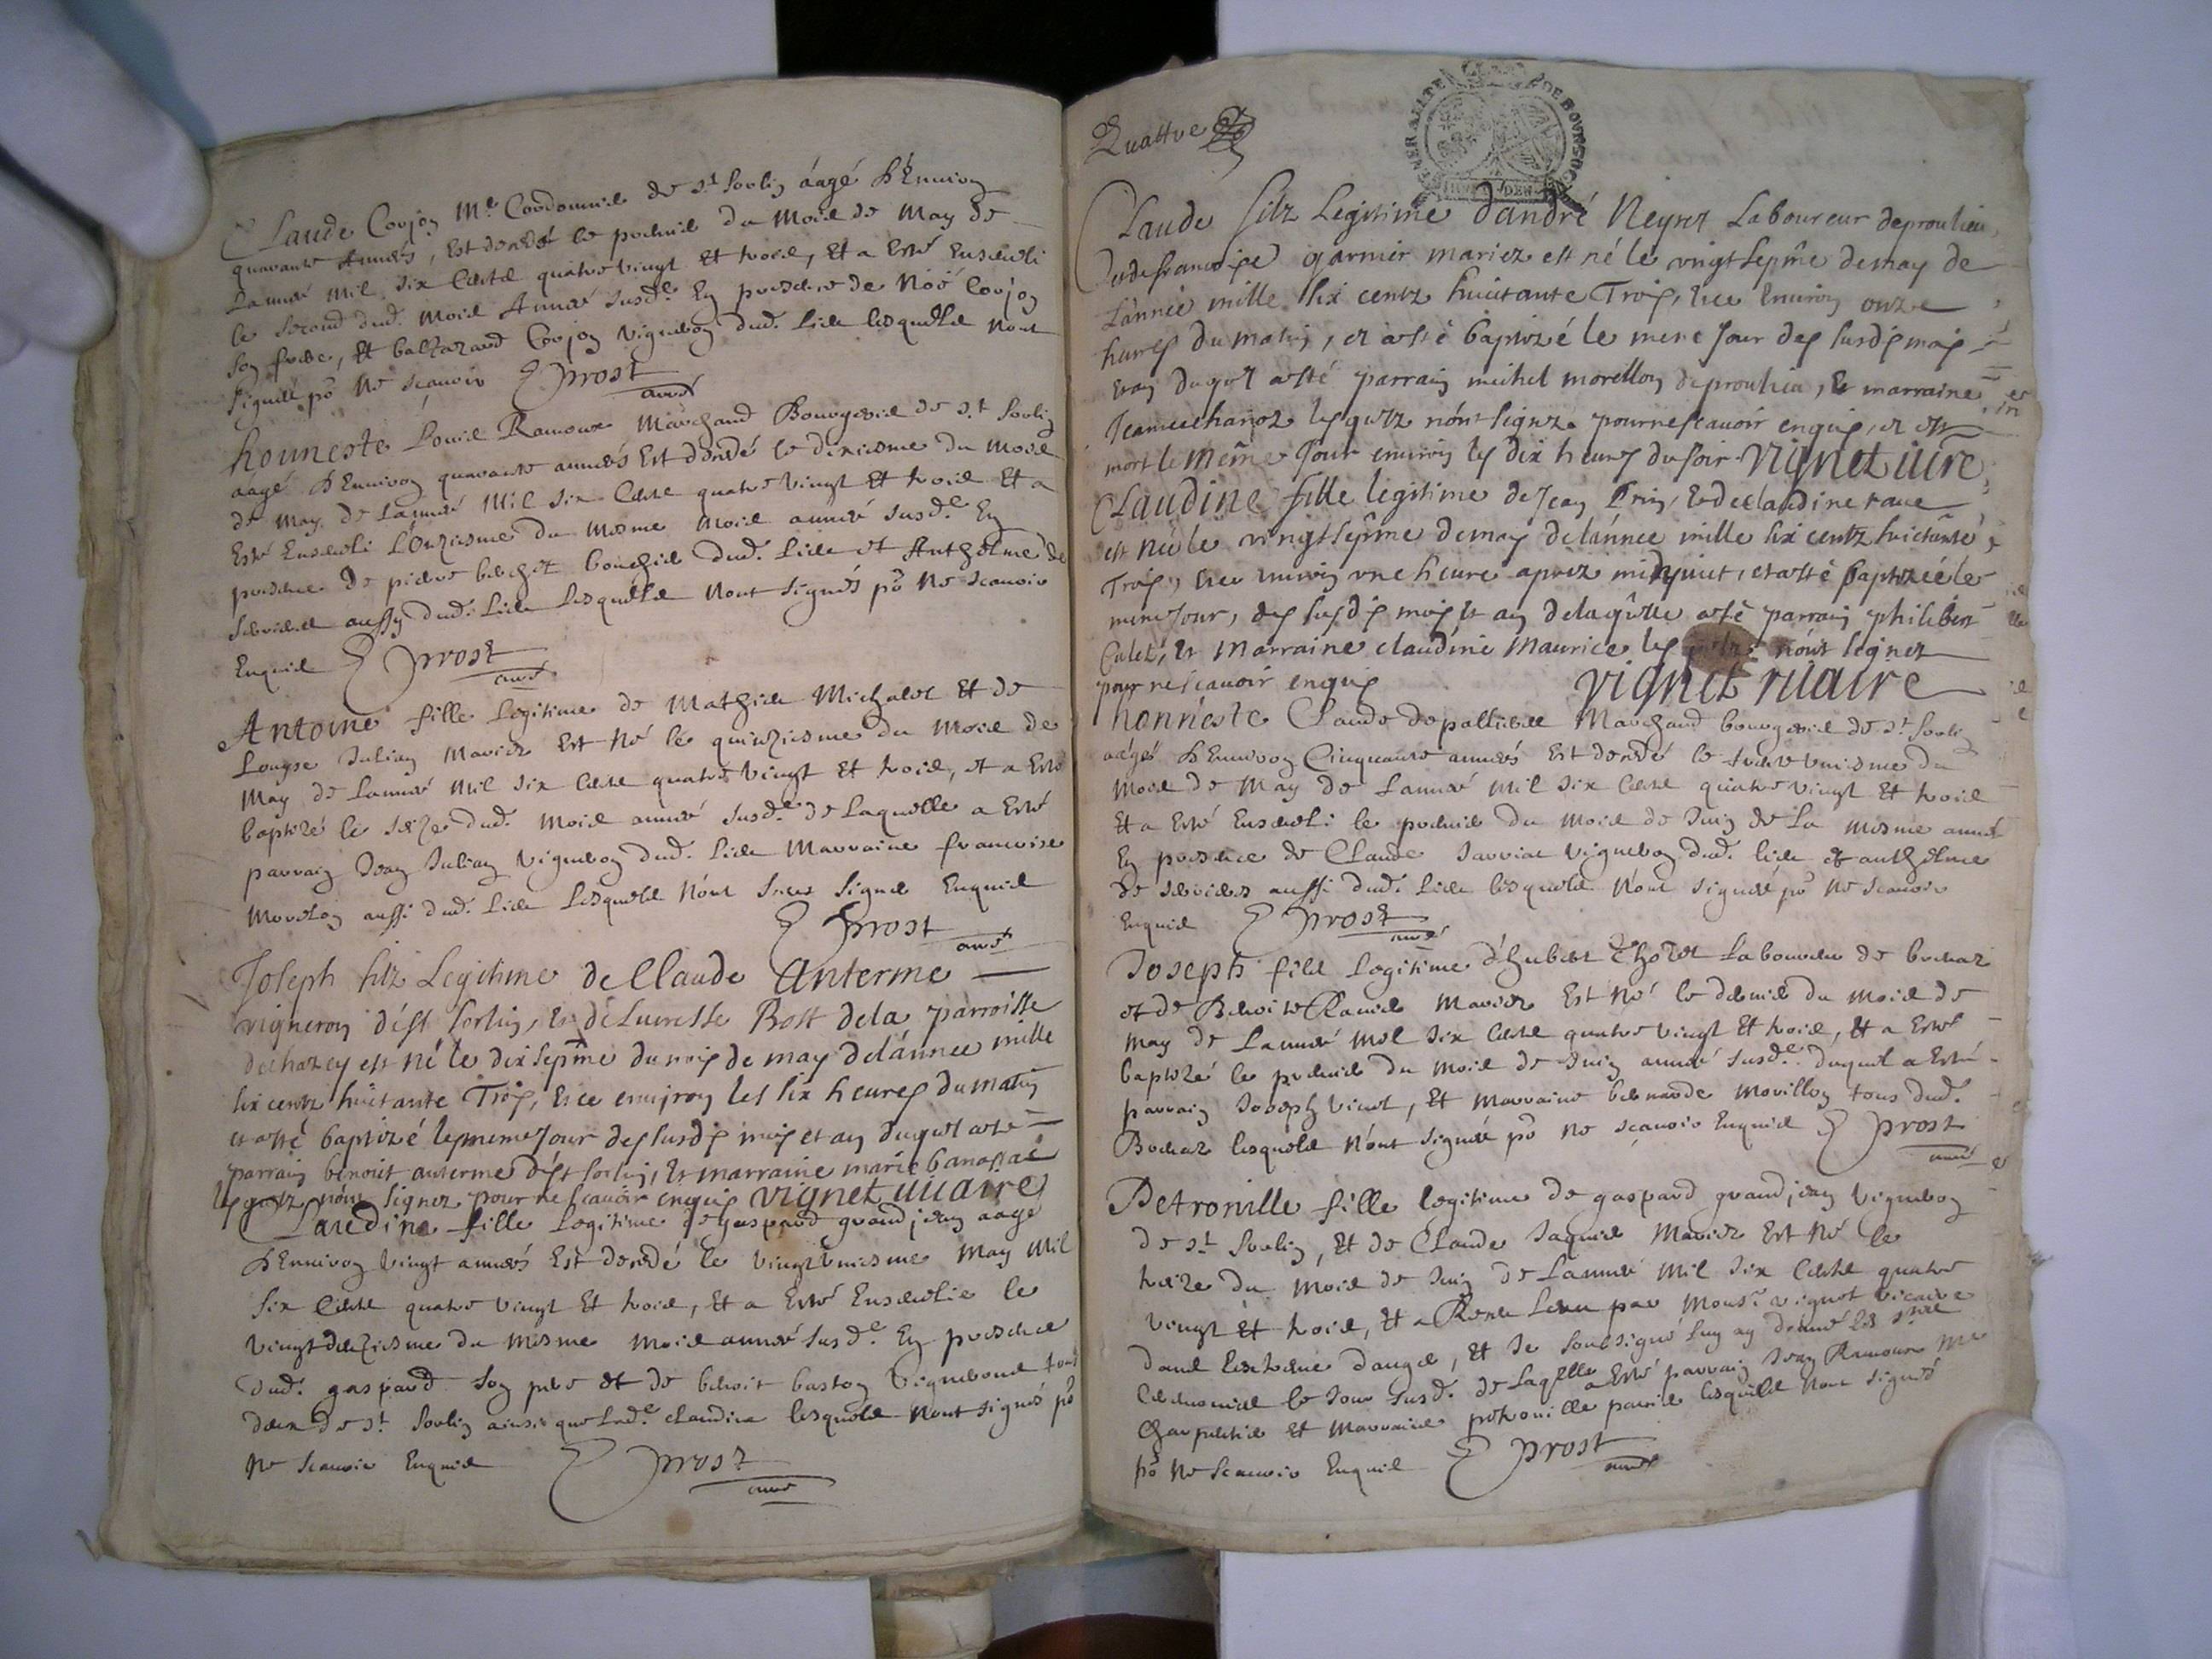 Claude Coujon Me Cordonnier de st Sorlin áagé d'Environ
quarante Années, Est decedé le premier du Mois de May de
Lannée Mil Six Cents quatre vingt Et trois, Et a Esté Enseveli
le second dud. Mois Année susde En presence de Noé Coujon
son frere, Et baltazard Coujon vigneron dud. Lieu lesquels nont
signés po Ne scauoir Prost
curé
honneste Louis Ramoux Marchand Bourgeois de St Sorlin
aagé d'Environ quarante années Est decedé le dixiesme du Mois
de May de Lannée Mil Six Cents quatre vingt Et trois Et a
Esté Enseveli L'Onziesme du Mesme Mois année susde En
presence de pierre berchet bouchier dud. Lieu et Anthelme de
serviere aussy dud. Lieu Lesquels Nont signés po Ne scauoir
Enquis Prost
curé
Antoine fille Legitime de Mathieu Michalet Et de
Louyse Julian Mariez Est Né le quinziesme du Mois de
May de Lannée Mil Six Cents quatre vingt Et trois, et a Esté
baptizé le seize dud. Mois année susde de Laquelle a Esté
parrain Jean Julian vigneron dud. Lieu Marraine francoise
Morelon aussi dud. Lieu Lesquels N'ont signé Enquis
Prost
curé
Joseph filz Legitime de Claude Anterme
vigneron dést sorlin, Et de Lucresse Bost dela parroisse
de hozey est né le dix sepme du mois de may delánnee mille
six centz huictante Trois, Et ce enuiron les six heures du matin
et asté baptizé le meme Jour des susds mois et an duquel a esté
parrain benoit anterme dést sorlin, Et marraine marie banassac
lesquelz nónt signez pour ne scauoir enquis vignet vicaire
Claudine fille Legitime de gaspard grandjean aagé
d'Environ vingt années Est decedé le vingtvniesme May Mil
six Cents quatre vingt Et trois, Et a Esté Ensevelie le
vingtdeuxiesme du Mesme Mois année susde En presence
dud. gaspard son pere et de benoit baston vignerons tous
deux de st Sorlin ainsi que lade claudine lesquels Nont signés po
Ne scauoir Enquis Prost
curé
Quattre
GENERALITE DE BOURGOGNE
Claude filz Legitime dandré Neyret Laboureur deproulieu,
Et de francoise garnier mariez est né le vingt sepme de may de
Lánnée mille six centz huictante Trois, Et ce Enuiron onze
heures du matin, et asté baptizé le meme Jour des susds mois
et an duql asté parrain michel morellon de proulieu, Et marraine
Jeanne chanoz lesqtz nónt signez pour ne scauoir enquis, et est
mort le même Jour enuiron les dix heures du soir. Vignet vire
Claudine fille legitime de Jean Prin, Et de claudine raue
est née le vingt sepme de may delánnee mille six centz huictante
Trois, Et ce enuiron vne heure aprez midynuit, et asté baptizée le
meme Jour, des susds mois et an delaqûlle asté parrain philibert
Calet, Et Marraine claudine Maurice les nónt signez
pour ne scauoir enquis vignet vicaire
honneste Claude depallieres Marchand bourgeois de st Sorlin
aágé d'Environ Cinquante années Est decedé le trente vniesme du
Mois de May de Lannée Mil Six Cents quatre vingt Et trois
Et a Esté Enseveli le premier du Mois de Juin de La Mesme année
En presence de Claude Jarriat vigneron dud. lieu et anthelme
de servieres aussi dud. Lieu lesquels N'ont signés po Ne scauoir
Enquis Prost
curé
Joseph fils Legitime d'hubert Thozet Laboureur de bochaz
et de Benoite Ravier Mariez Est Né le dernier du Mois de
May de Lannée Mil Six Cents quatre vingt Et trois, Et a Esté
baptizé le premier du Mois de Juin année susde. duquel a Esté
parrain Joseph vinot, Et Marraine bernarde Morillon tous dud.
Bochaz lesquels N'ont signés po Ne scauoir Enquis Prost
curé
Petronille fille legitime de gaspard grandjean vigneron
de st Sorlin, Et de Claude Jaquier Mariez Est Né le
treize du Mois de Juin de Lannée Mil Six Cents quatre
vingt Et trois, Et a par Monsr vignet vicaire
dans Lextreme danger, Et Je soussigné luy ay donné les
ceremonies le Jour susd. de Laqlle a Esté parrain Jean Ramoux Me
charpentier Et Marraine petronille lesquels Nont signés
po Ne scauoir Enquis Prost
curé